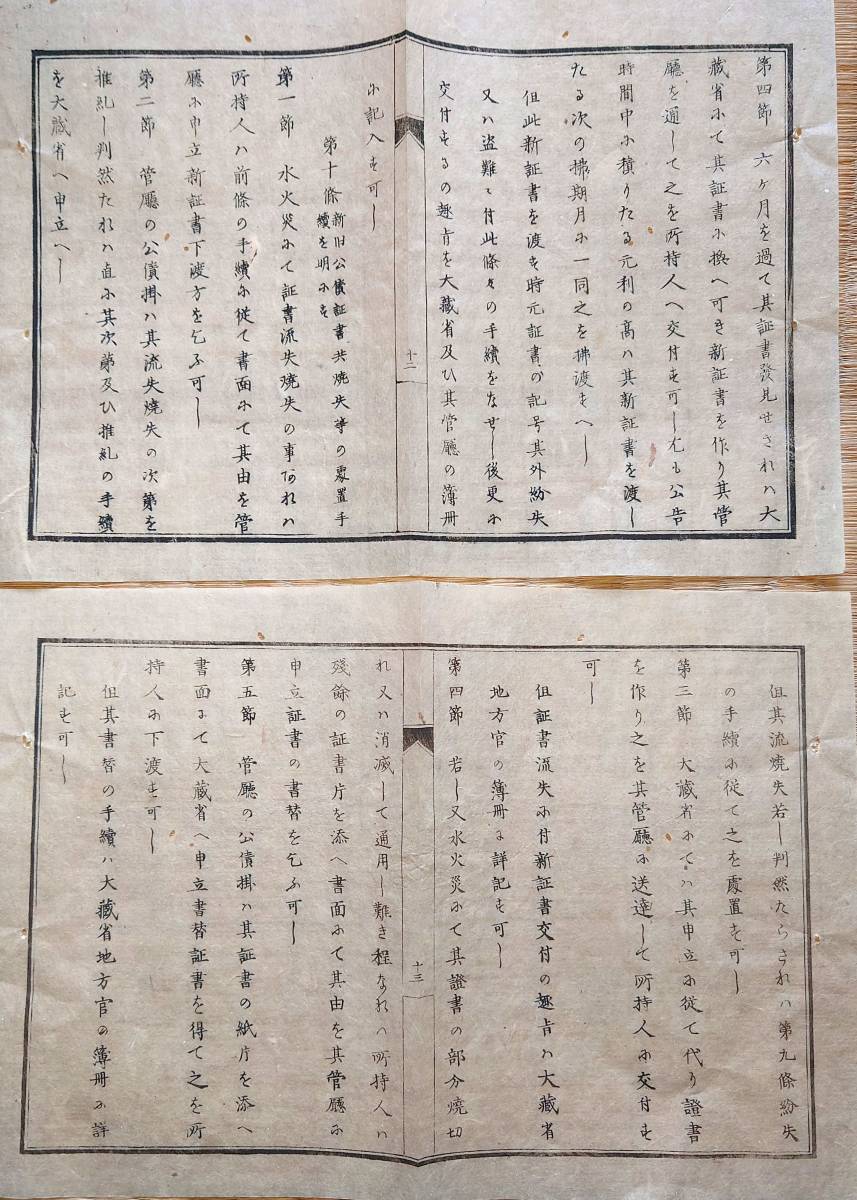 第四節　六ケ月を過て其証書發見せされハ大
藏省にて其証書に換へ可き新証書を作り其管
廳を通して之を所持人へ交付す可し尤も公告
時間中に積りたる元利の高ハ其新証書を渡し
たる次の拂期月に一同之を拂渡すへし
但此新証書を渡す時元証書の記号其外紛失
又ハ盗難に付此條々の手續をなせし後更に
交付するの趣旨を大藏省及ひ其管廳の簿冊
十二
に記入す可し
第十條　新旧公債証書共焼失等の處置手
續を明にす
第一節　水火災にて証書流失焼失の事あれハ
所持人ハ前條の手續に従て書面にて其由を管
廳に申立新証書下渡方を乞ふ可し
第二節　管廳の公債掛ハ其流失焼失の次第を
推糺し判然たれハ直に其次第及ひ推糺の手續
を大藏省へ申立へし
但其流焼失若し判然たらされハ第九條紛失
の手續に従て之を處置す可し
第三節　大藏省にてハ其申立に従て代り證書
を作り之を其管廳に送達して所持人に交付す
可し
但証書流失に付新証書交付の趣旨ハ大藏省
地方官の簿冊に詳記す可し
第四節　若し又水火災にて其證書の部分焼切
十三
れ又ハ消滅して通用し難き程なれハ所持人ハ
殘餘の証書片を添へ書面にて其由を其管廳に
申立証書の書替を乞ふ可し
第五節　管廳の公債掛ハ其証書の紙片を添へ
書面にて大藏省へ申立書替証書を得て之を所
持人に下渡す可し
但其書替の手續ハ大藏省地方官の簿冊に詳
記す可し